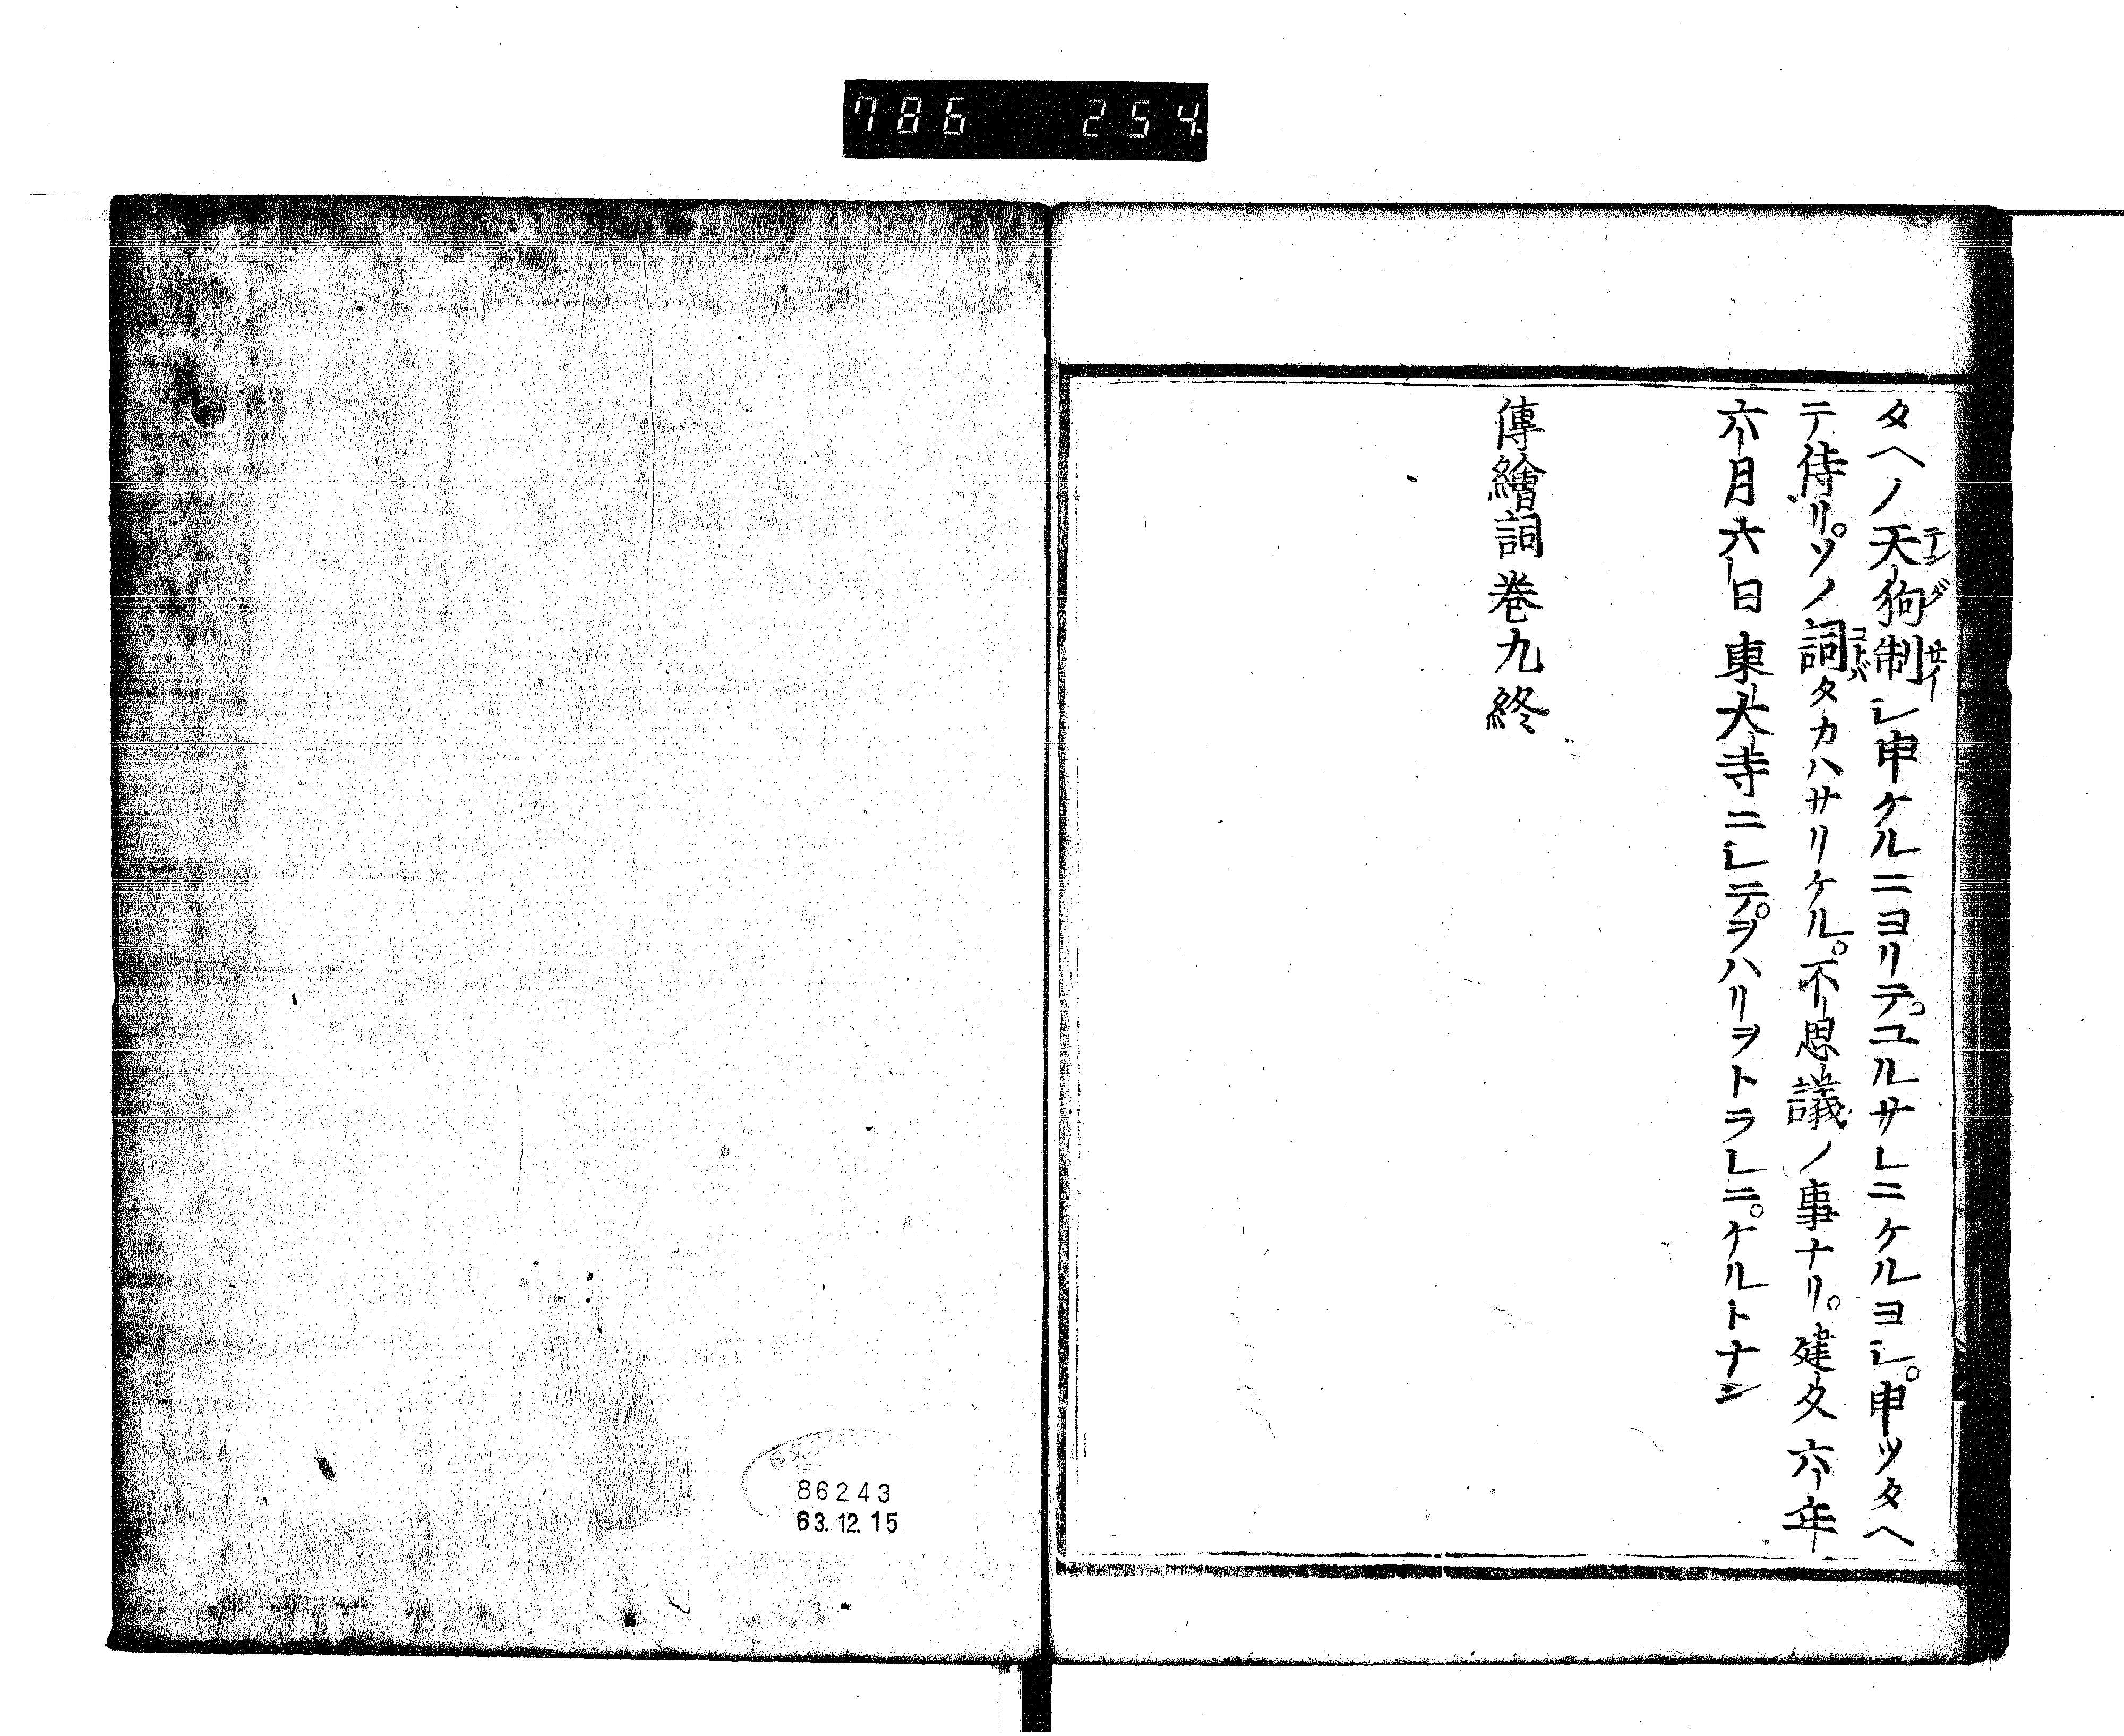 786 254
タヘノ天狗制シ申ケルニヨリテ。ユルサレニケルヨシ。申ツタヘ
テ侍リ。ソノ詞タカハサリケル。不思議ノ事ナリ。建久六年
六月六日東大寺ニシテ。ヲハリヲトラレニ。ケルトナン
傳繪詞巻九終
86243
63.12.15